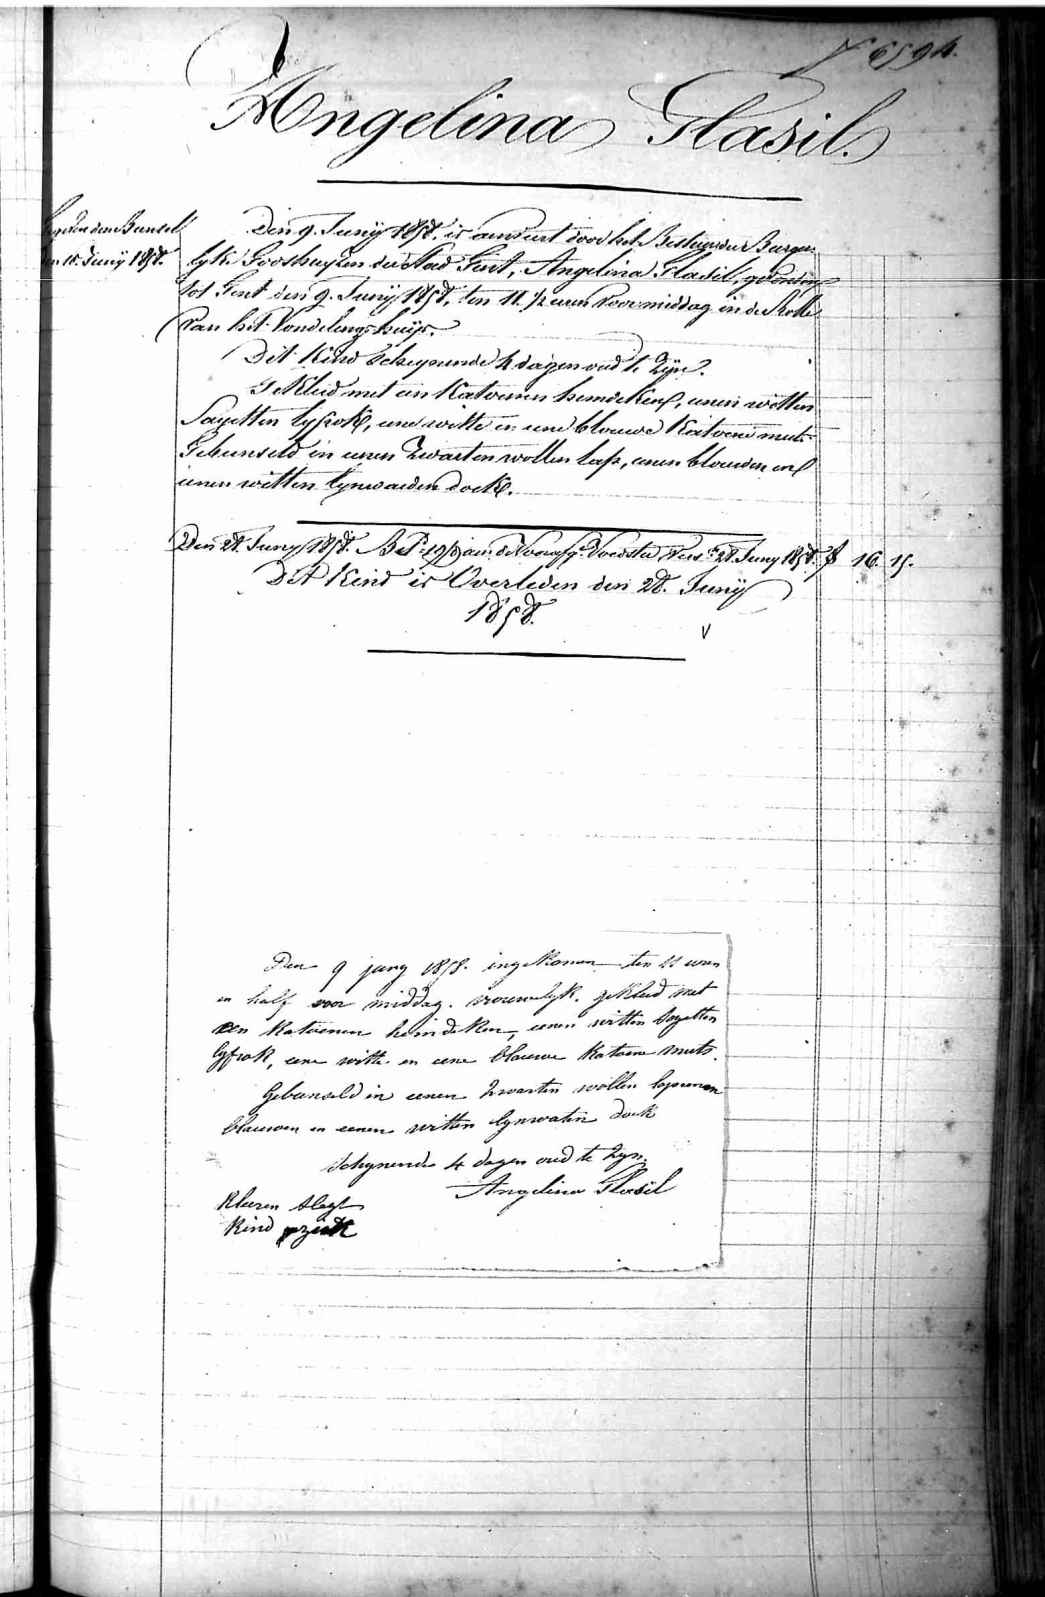 N° 6594.
Angelina Flasil.
Den 9. Junij 1858. is aenveird door het Bestuur der Burger-
lyke Godshuyzen der Stad Gent, Angelina Flasil, gevonden
tot Gent den 9. Junij 1858, ten 11. 1/2 uren voormiddag in de Rolle
van het Vondelingshuys.
Dit Kind Scheynende 4 dagen oud te Zijn.
Gekleed met een Katoenen hemdeken, eenen witten
Sayetten lyfrok, eene witte en eene blauwe Katoene muts
Gebunseld in eenen Zwarten wollen lap, eenen blauwen en
eenen witten lynwaeden doek.
den 15 Junij 1858.
Den 28. Junij 1858. aen de Voedster 28. Juny 1858. f 16. 15.
Dit Kind is Overleden den 28. Junij
1858.
Den 9 juny 1858. ingekomen ten 11 uren
en half voor middag. vrouwelyk. gekleed met
een katoenen hemdeken, eenen witten sayetten
lyfrok, eene witte en eene blauwe katoene muts.
Gebunseld in eenen zwarten wollen lap eenen
blauwen en eenen witten lynwaten doek
Schynende 4 dagen oud te zyn.
Angelina Flasil
Kleeren slegt
Kind ziek